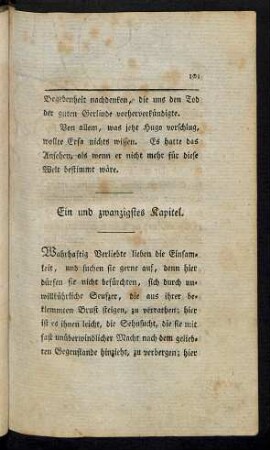 101
Begebenheit nachdenken, die uns den Tod
der guten Gerlinde vorherverkündigte.
Von allem, was jetzt Hugo vorschlug,
wollte Ersa nichts wissen. Es hatte das
Ansehen, als wenn er nicht mehr für diese
Welt bestimmt wäre.
Ein und zwanzigstes Kapitel.
Wahrhaftig Verliebte lieben die Einsam-
keit, und suchen sie gerne auf, denn hier
dürfen sie nicht befürchten, sich durch un-
willkührliche Seufzer, die aus ihrer be-
klemmten Brust steigen, zu verrathen; hier
ist es ihnen leicht, die Sehnsucht, die sie mit
fast unüberwindlicher Macht nach dem gelieb-
ten Gegenstande hinzieht, zu verbergen; hier